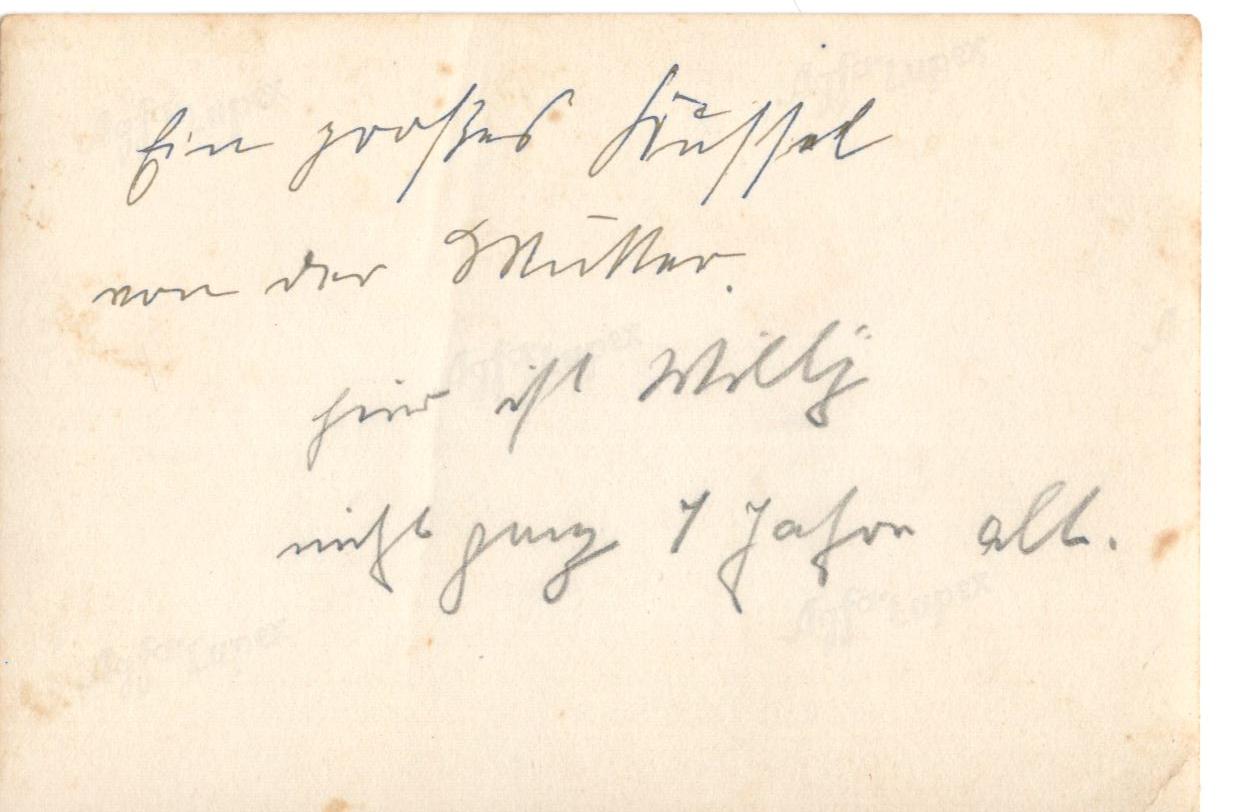 Ein großes Küssel
von der Mutter.
hier ist Willÿ
nicht ganz 7 Jahre alt.
Agfa Lupex
Agfa Lupex
Agfa Lupex
Agfa Lupex
Agfa Lupex